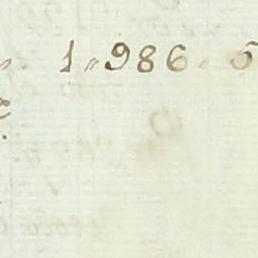 1 " 986 . 5